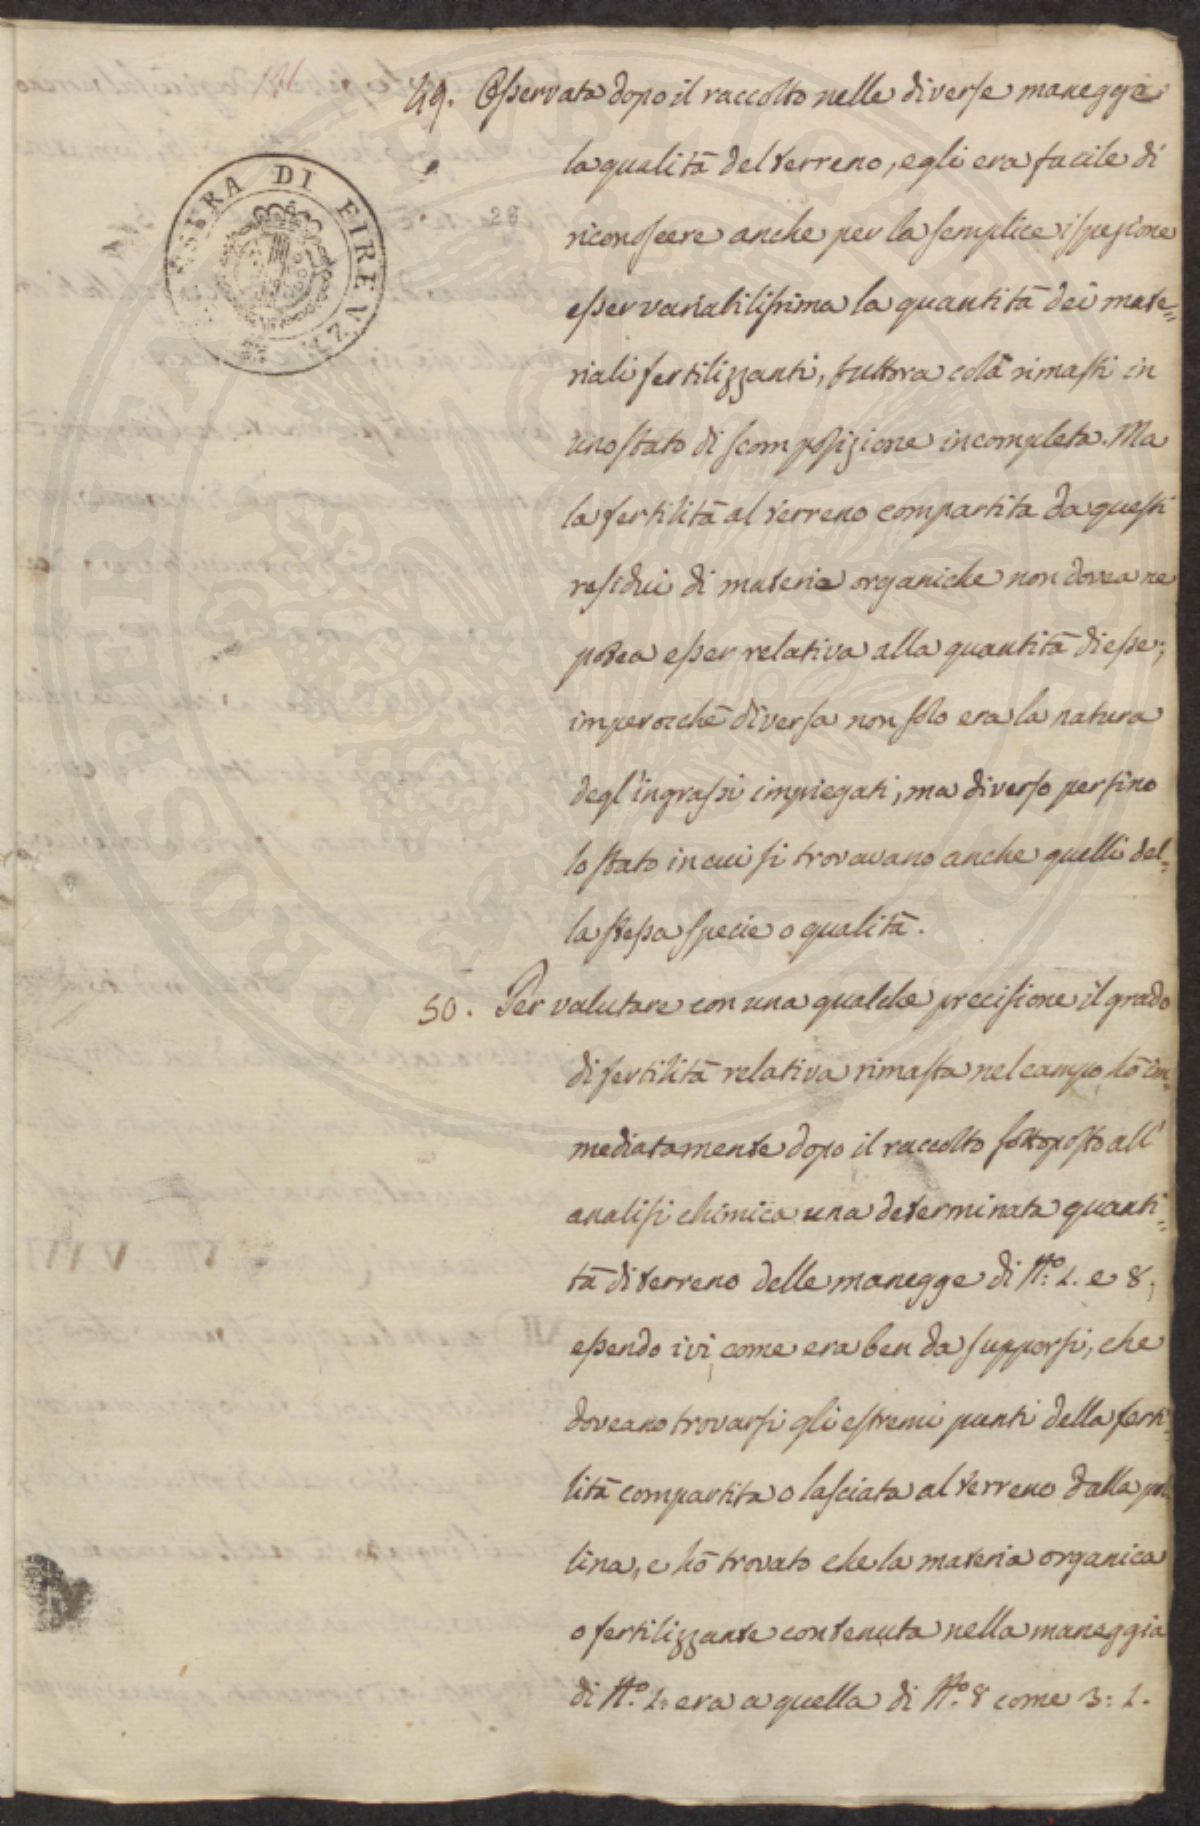 49. Osservata dopo il raccolto nelle diverse maneggie
la qualità del terreno, egli era facile di
riconoscere anche per la semplice ispezione
esser variabilissima la quantità dei mate=
riali fertilizzanti, tuttora colà rimasti in
uno stato di scomposizione incompleta. Ma
la fertilità al terreno compartita da questi
residui di materie organiche non dovea ne
potea esser relativa alla quantità di esse;
imperocchè diversa non solo era la natura
degl'ingrassi impiegati, ma diverso persino
lo stato in cui si trovavano anche quelli del=
la stessa specie o qualità.
50. Per valutare con una qualche precisione il grado
di fertilità relativa rimasta nel campo hò im=
mediatamente dopo il raccolto sottoposto all'
analisi chimica una determinata quanti=
tà di terreno delle manegge di N.º 1. e 8,
essendo ivi, come era ben da supporsi, che
doveano trovarsi gli estremi punti della ferti=
lità compartita o lasciata al terreno dalla pol=
lina, e hò trovato che la materia organica
o fertilizzante contenuta nella maneggia
di N.º 1. era a quella di N.º 8 come 3: 1.
28
DI FIRENZE